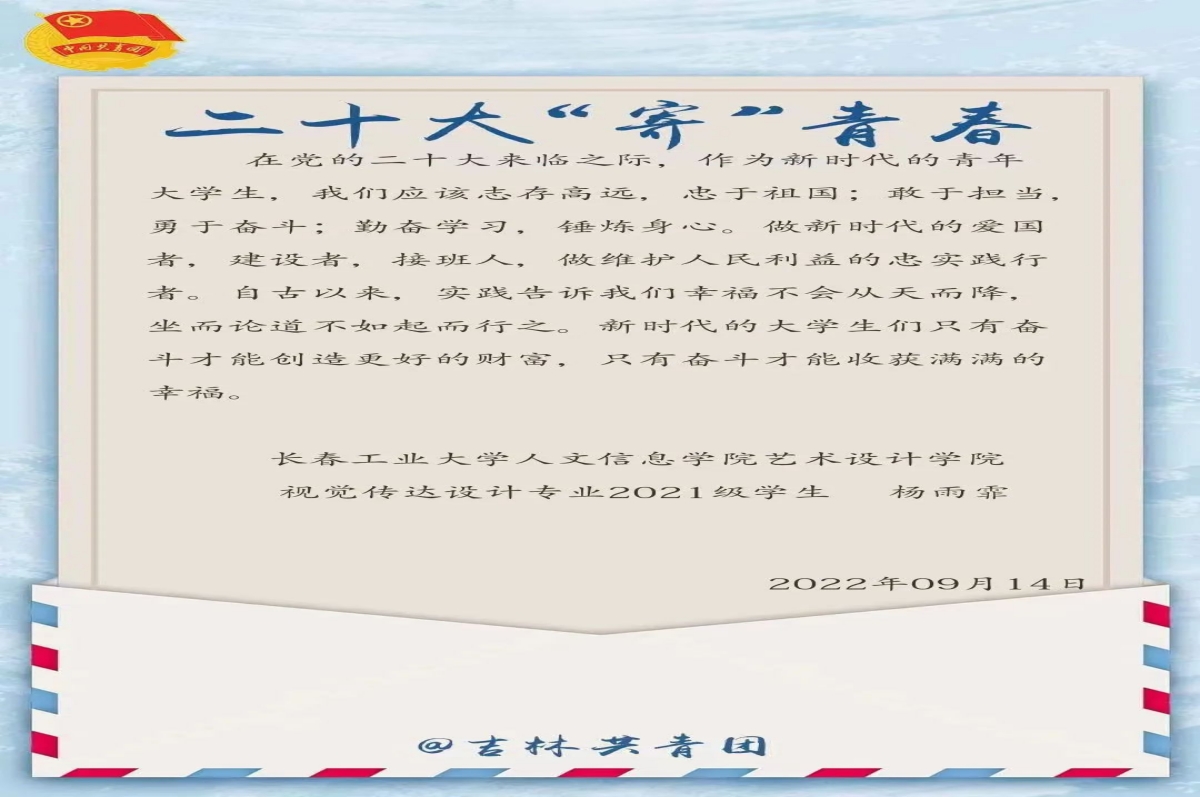 中国共青团
二十大“寄”青春
在党的二十大来临之际，作为新时代的青年
大学生，我们应该志存高远，忠于祖国；敢于担当，
勇于奋斗；勤奋学习，锤炼身心。做新时代的爱国
者，建设者，接班人，做维护人民利益的忠实践行
者。自古以来，实践告诉我们幸福不会从天而降，
坐而论道不如起而行之。新时代的大学生们只有奋
斗才能创造更好的财富，只有奋斗才能收获满满的
幸福。
长春工业大学人文信息学院艺术设计学院
视觉传达设计专业2021级学生 杨雨霏
2022年09月14日
@吉林共青团